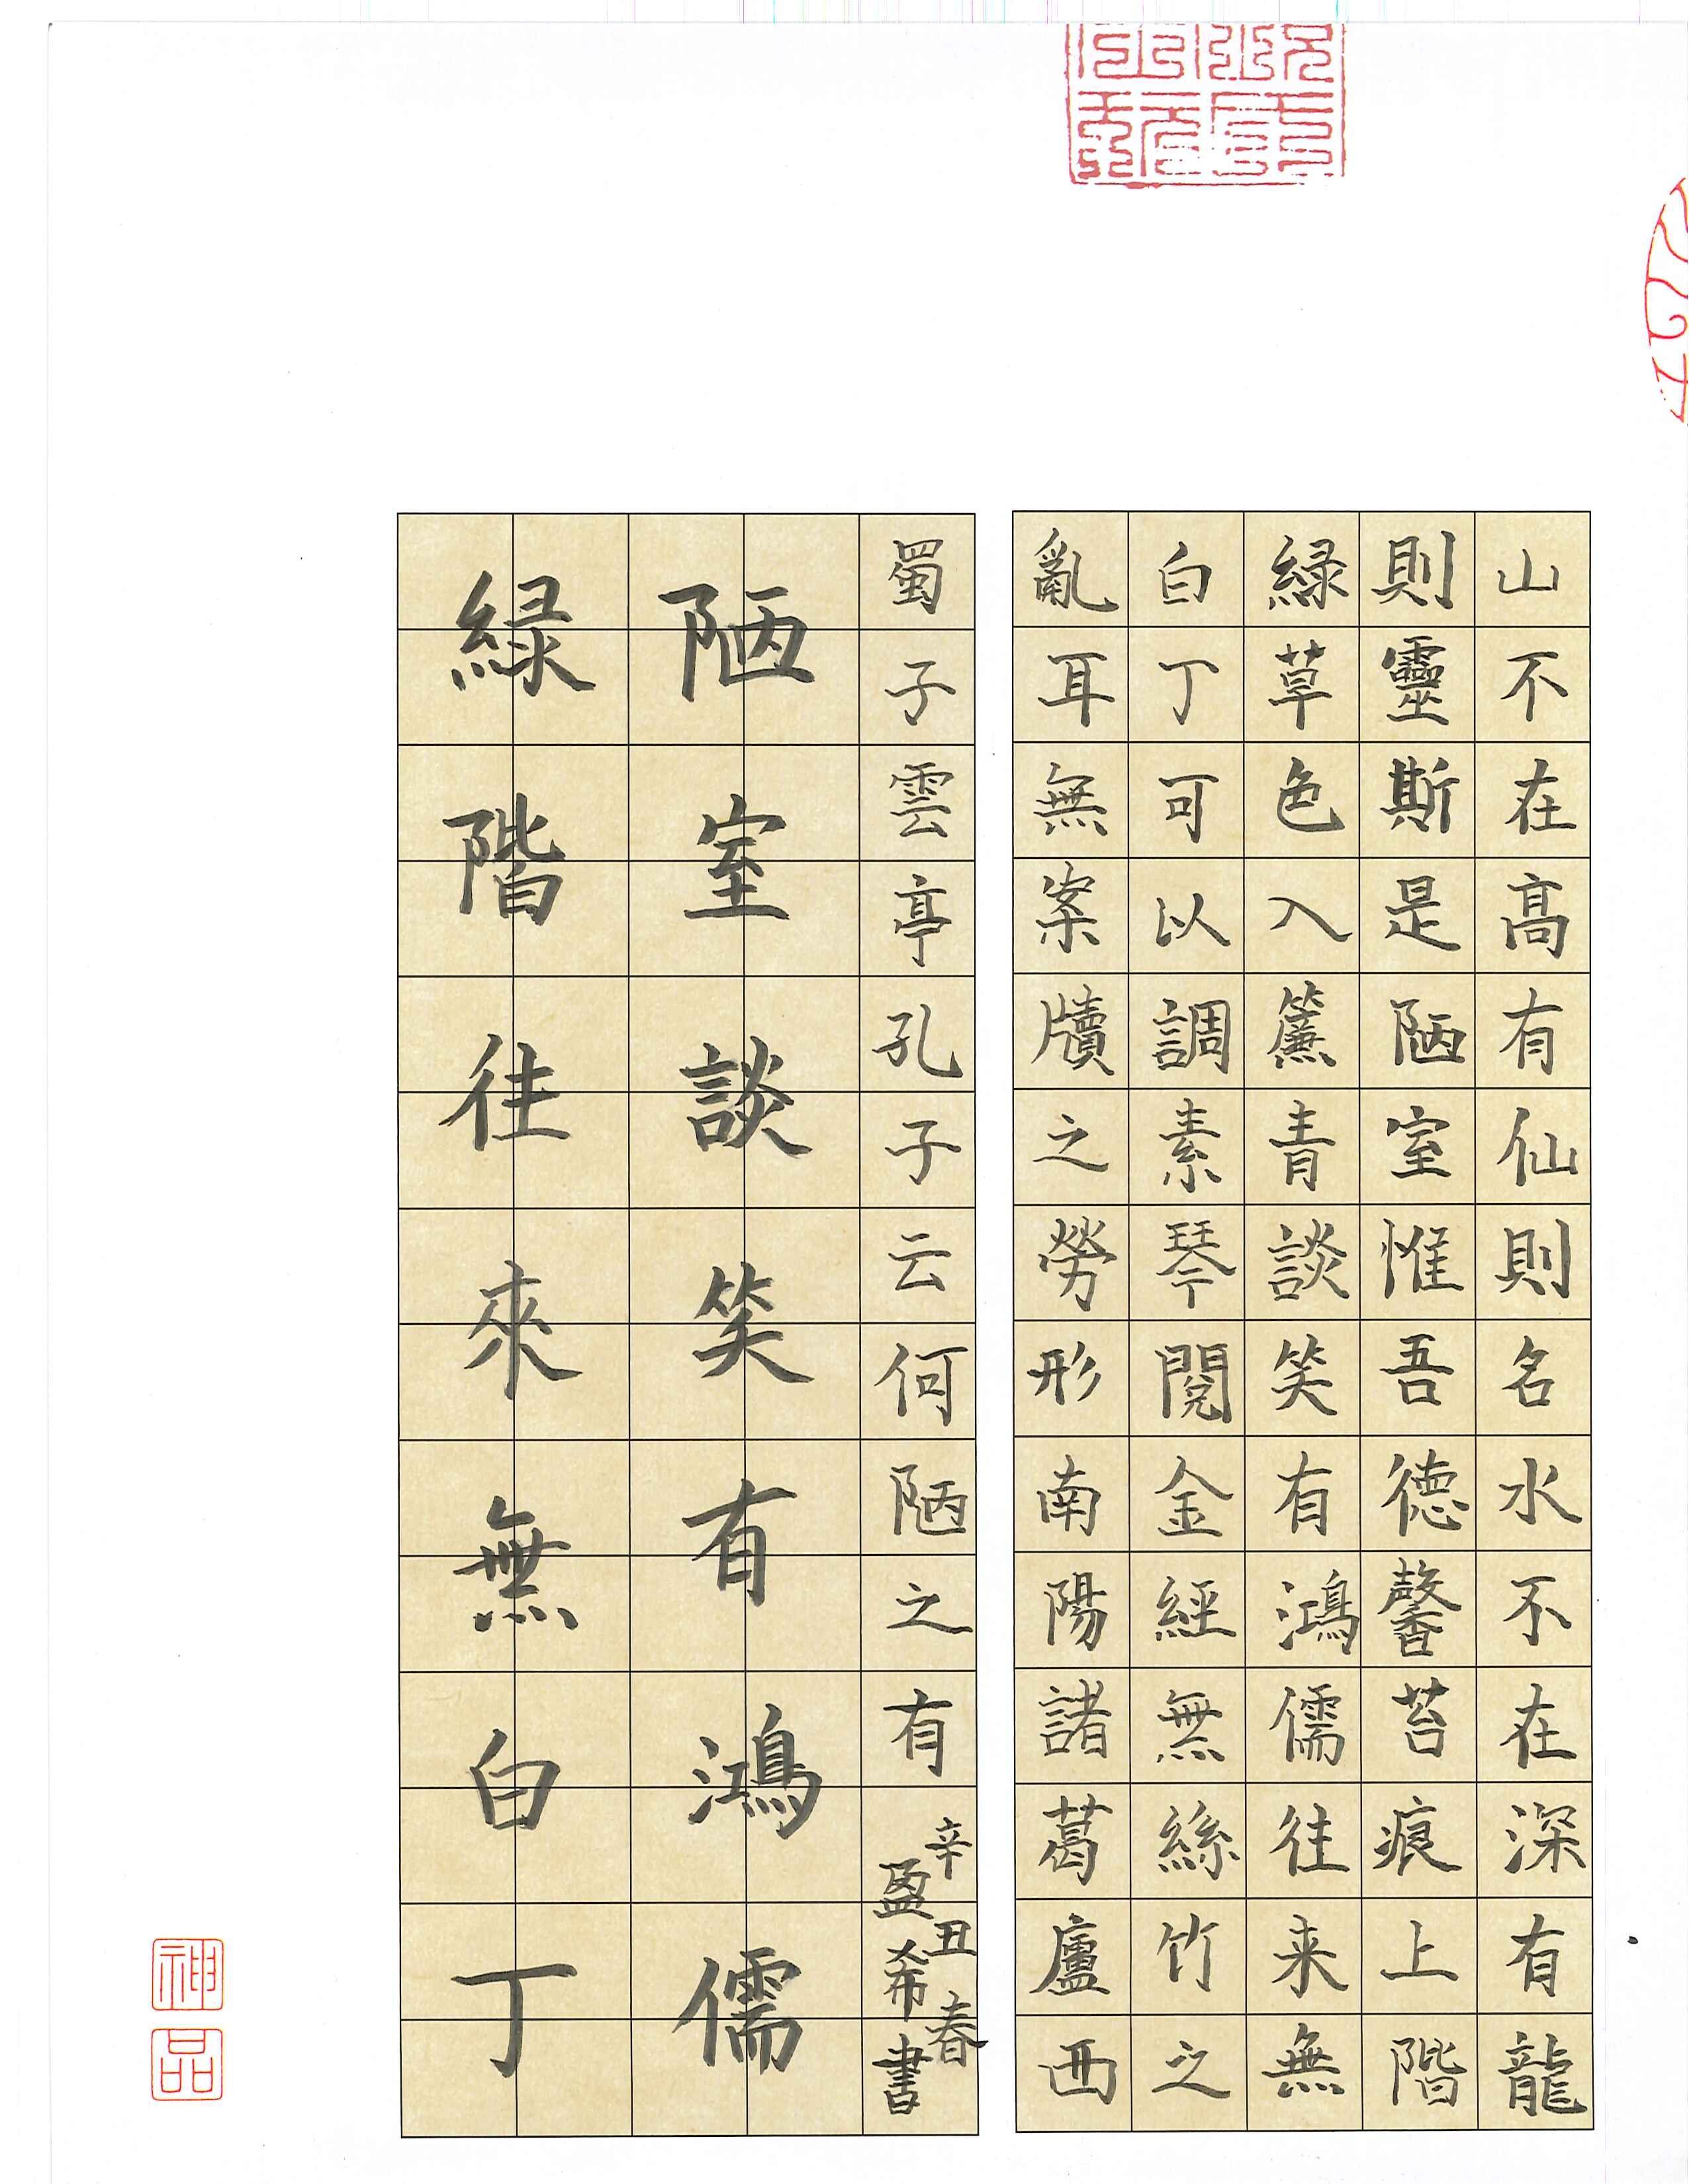 山不在髙有仙則名水不在深有龍
則靈斯是陋室惟吾德馨苔痕上階
緑草色入簾青談笑有鴻儒往来無
白丁可以調素琴閱金經無絲竹之
亂耳無案牘之勞形南陽諸葛廬西
蜀子雲亭孔子云何陋之有
辛丑春
盈希書
陋室談笑有鴻儒
緑階往來無白丁
神品